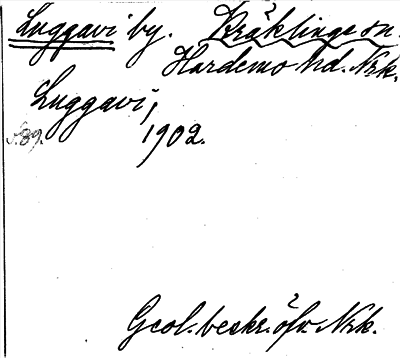 Luggavi by. Kräklinge sn.
Hardemo hd. Nrk.
Luggavi,
s.89.
1902.
Geol. beskr. öfv. Nrk.